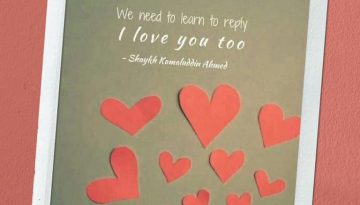 We need to learn to reply
I love you too
- Shaykh Kamaluddin Ahmed